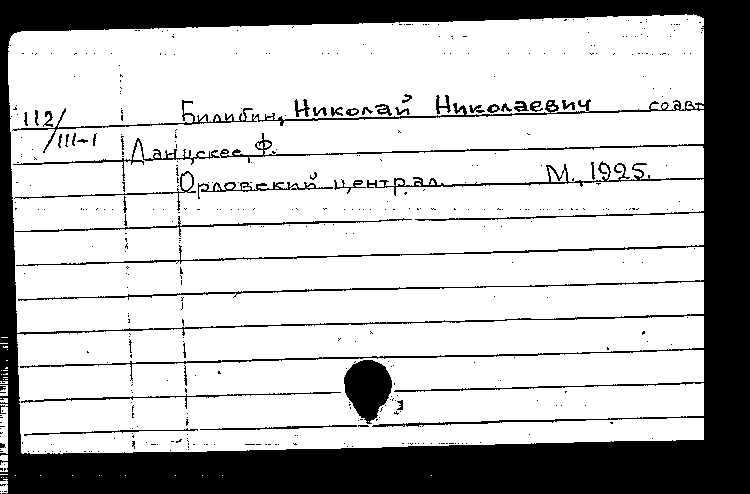 112/III-1 Билибин, Николай Николаевич соавт
Данцскее, Ф.
Орловский централ. М., 1925.